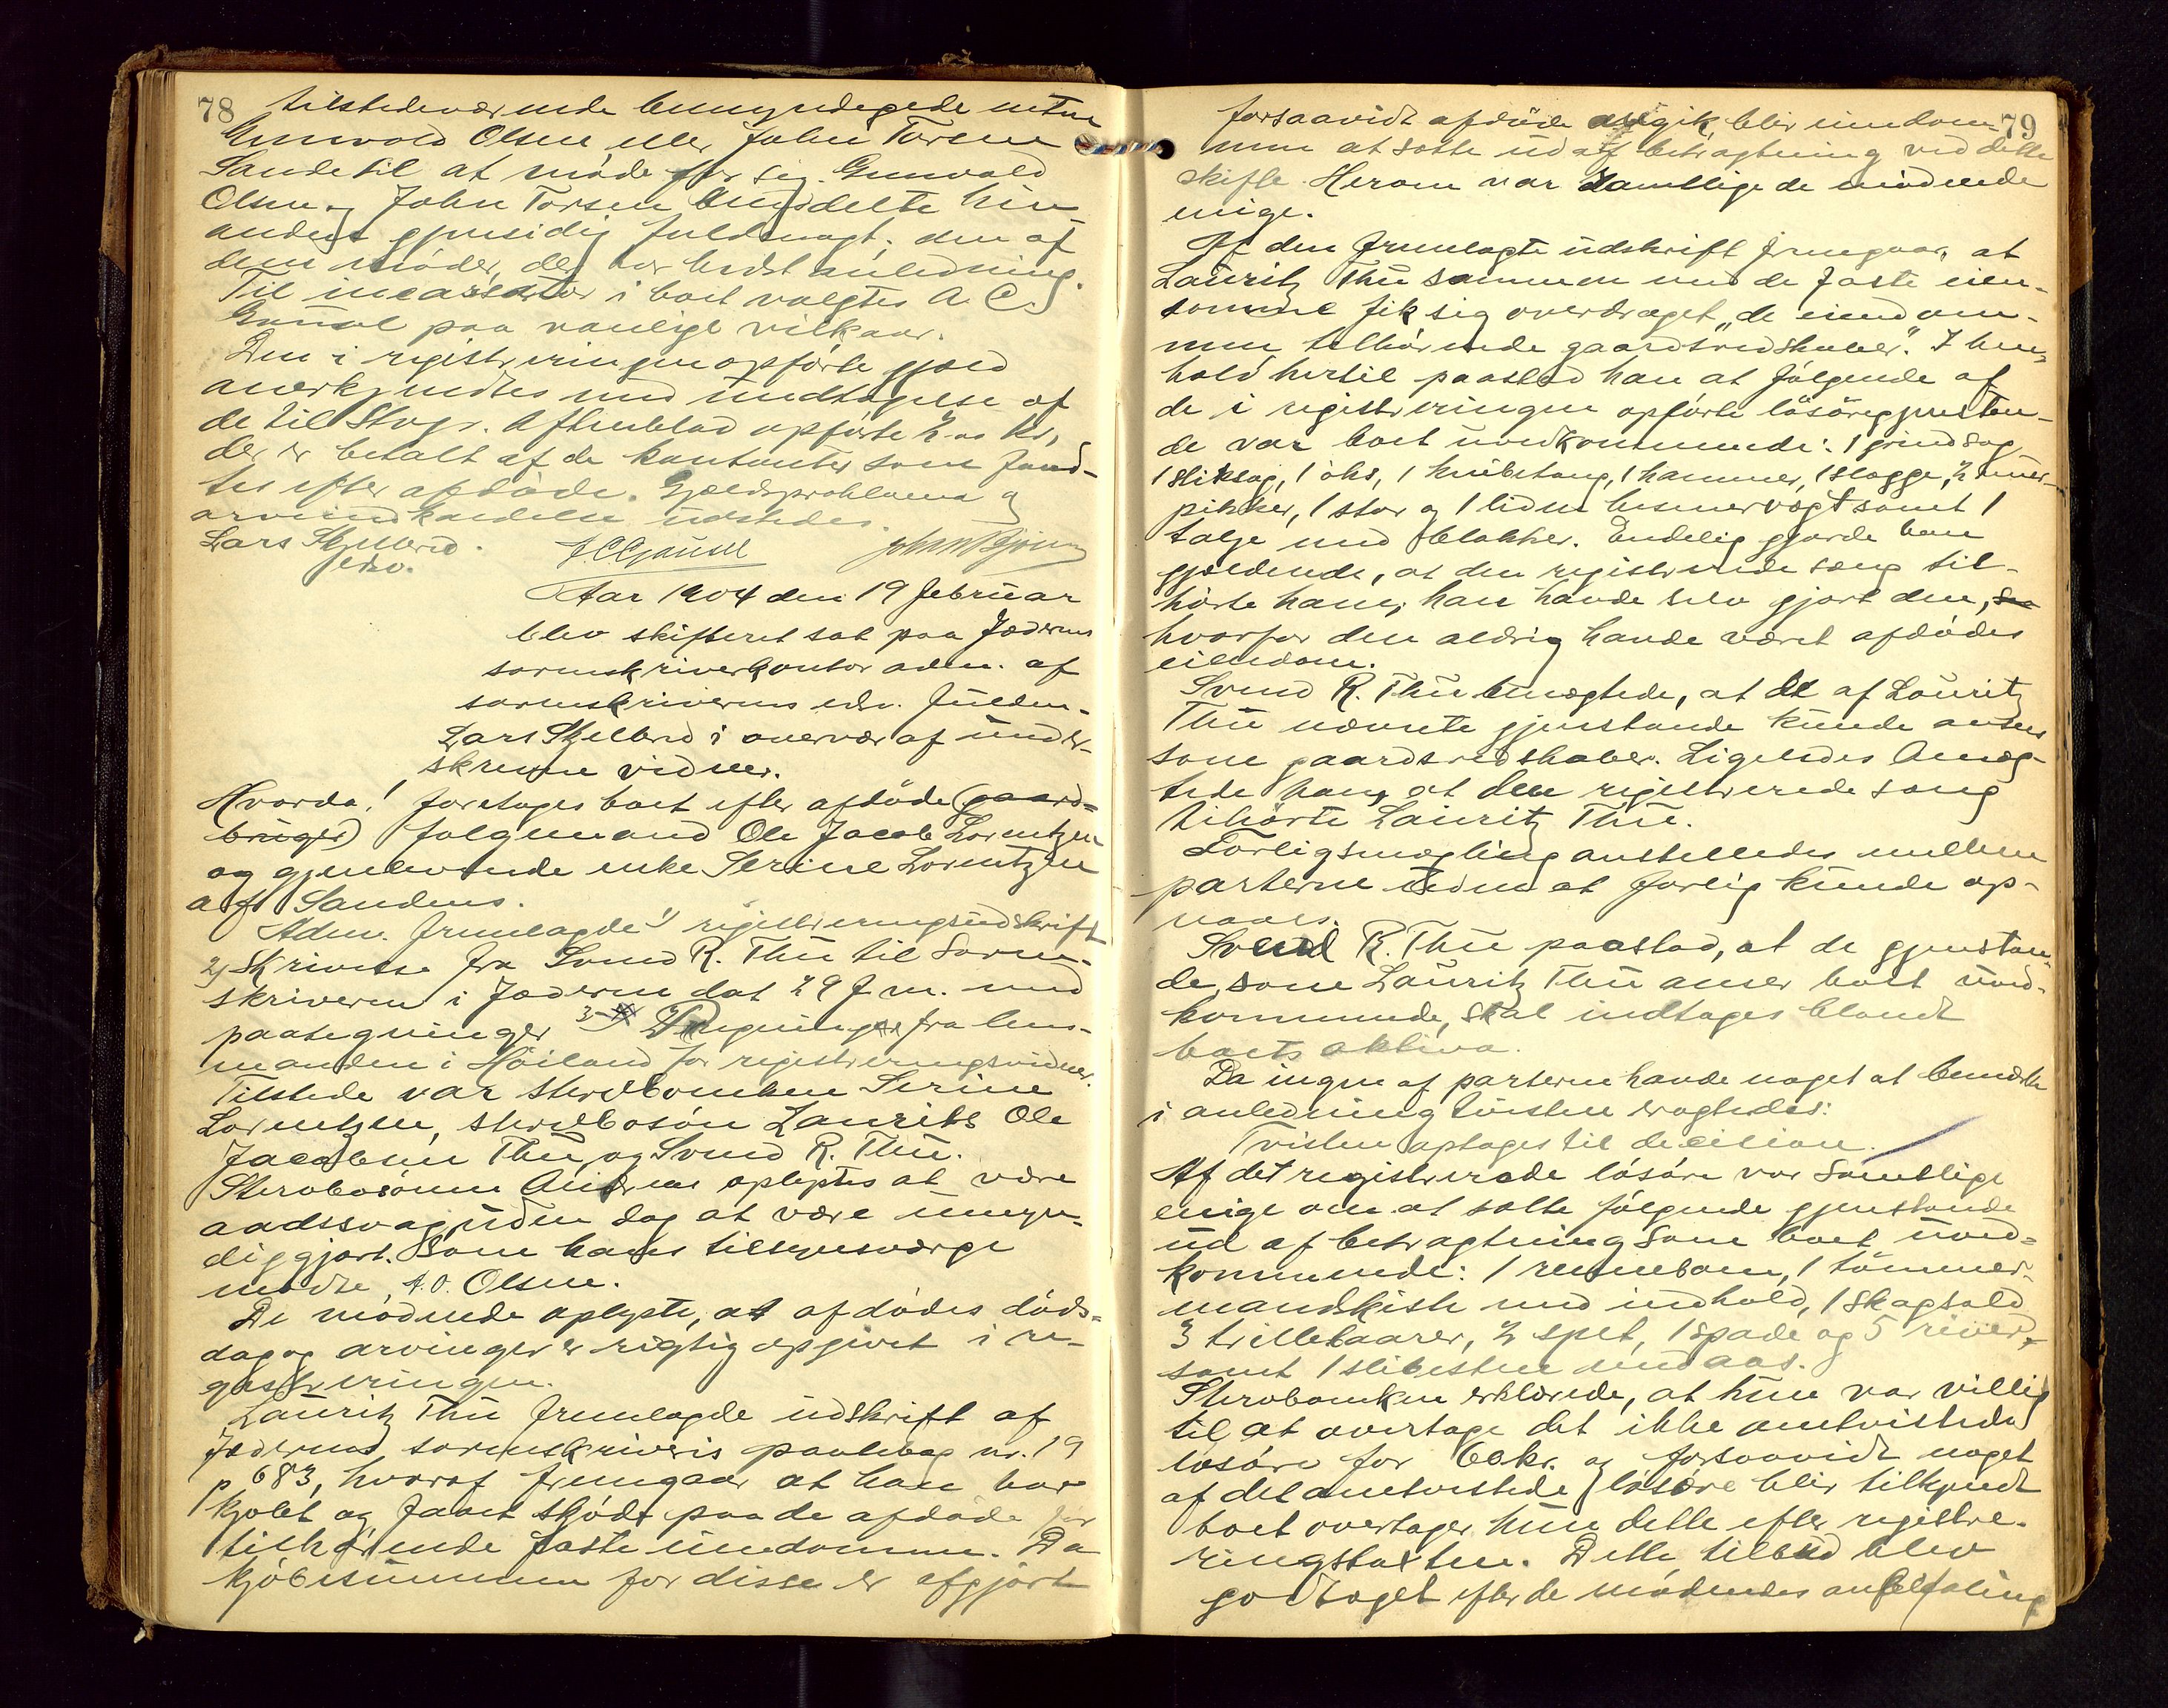 78
tilstedeværende bemyndigede enten
Gunvald Olsen eller John Torsen
Sande til at møde for sig. Gunvald
Olsen og John Torsen meddelte hin-
anden gjensidig fuldmagt; den af
dem møder, der har bedst anledning.
Til incassator i boet valgtes A. C.
Gausel paa vanlige vilkaar.
Den i registreringen opførte gjæld
anerkjendtes med undtagelse af
de til Stvgr. Aftenblad opførte 2 00 kr,
der er betalt af de kontanter som fand-
tes efter afdøde. Gjældsproklama og
arveindkaldelse udstedes.
Lars Skjelbred. A C Gausel John Björu
edsv.
Aar 1904 den 19 februar
blev skifteret sat paa Jæderens
sorenskriverkontor adm. af
sorenskriverens edsv. fuldm.
Lars Skjelbred i overvær af under-
skrevne vidner.
Hvorda! foretoges boet efter afdøde (gaard-
bruger) folgemand Ole Jacob Lorentzen
og gjenlevende enke Serine Lorentzen
af Sandnes.
Adm. fremlagde 1) registreringsudskrift
2) Skrivelse fra Svend R. Thu til Soren-
skriveren i Jæderen dat 29 f. m. med
paategninger 3) Regning fra lens-
manden i Höiland for registreringsvidner.
Tilstede var sterbboenken Serine
Lorentzen, sterbbosön Laurits Ole
Jacobsen Thu og Svend R. Thu.
Sterbosönnen Andreas oplystes at være
aadssvag uden dog at være umyn-
diggjort. Som hans tilsynsværge
mødte A. O. Olsen.
De mødende oplyste, at afdødes döds-
dag og arvinger er rigtig opgivet i re-
gistreringen.
Lauritz Thu fremlagde udskrift af
Jæderens sorenskriveris pantebog nr. 19
p 683, hvoraf fremgaar at han har
kjøbt og faaet skjøde paa de afdøde før
tilhørende faste eiendomme. Da
kjøbesummen for disse er afgjort
79
forsaavidt afdøde angik, blir eiendom-
men at sætte ud af betragtning ved dette
skifte. Herom var samtlige de mödende
enige.
Af den fremlagte udskrift fremgaar, at
Lauritz Thu sammen med de faste eien-
domme fik sig overdraget „de eiendom-
men tilhörende gaardsredskaber". I hen-
hold hertil paastod han at følgende af
de i registreringen opførte løsöregjenstan-
de var boet uvedkommende: 1 grindsag
1 stiksag, 1 öks, 1 knibetang, 1 hammer, 1 slægge, 2 muer-
pikker, 1 stor og 1 liden bismervægt samt 1
talje med blokker. Endelig gjorde han
gjældende, at den registrerede seng til-
hørte ham; han havde selv gjort den,
hvorfor den aldrig havde været afdødes
eiendom.
Svend R. Thu benægtede, at de af Lauritz
Thu nævnte gjenstande kunde ansees
som gaardsredskaber. Ligeledes benæg-
tede han, at den registrerede seng
tilhörte Lauritz Thu.
Forligsmægling anstilledes mellem
parterne uden at forlig kunde op-
naaes.
Svend R. Thu paastod, at de gjenstan-
de, som Lauritz Thu anser boet uved-
kommende, skal indtages blandt
boets aktiva.
Da ingen af parterne havde noget at bemærke
i anledning tvisten eragtedes:
Tvisten optages til decision.
Af det registrerede løsøre var samtlige
enige om at sætte følgende gjenstande
ud af betragtning som boet uved-
kommende: 1 rennebom, 1 tömmer-
mandskiste med indhold, 1 skagsald
3 trillebaarer, 2 spet, 1 spade og 5 river
samt 1 slibesten med aas.
Sterboenken erklærede, at hun var villig
til at overtage det ikke omtvistede
løsøre for 60 kr. og forsaavidt noget
af det omtvistede løsøre blir tilkjendt
boet overtager hun dette efter registre-
ringstaksten. Dette tilbud blev
godtaget efter de mødendes anbefaling